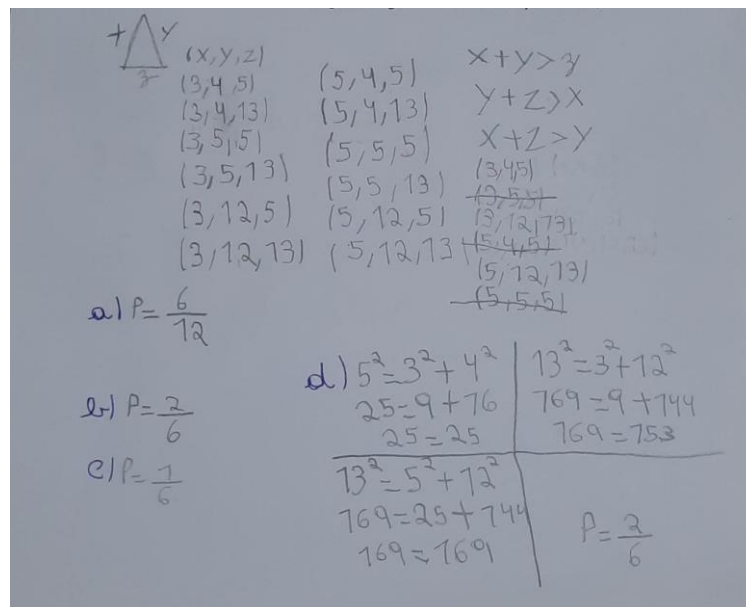 x y
z
(x,y,z)
(3,4,5)
(3,4,13)
(3,5,5)
(3,5,13)
(3,12,5)
(3,12,13)
(5,4,5)
(5,4,13)
(5,5,5)
(5,5,13)
(5,12,5)
(5,12,13)
x+y>z
y+z>x
x+z>y
(3,4,5)
(3,5,5)
(3,12,13)
(5,4,5)
(5,12,13)
(5,5,5)
a) P=6/12
b) P=2/6
c) P=1/6
d) 5²=3²+4²
25=9+16
25=25
13²=3²+12²
169=9+144
169=153
13²=5²+12²
169=25+144
169=169
P=2/6